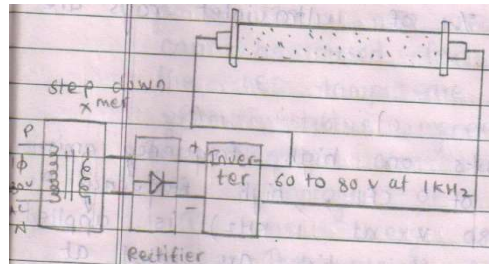 step down
xmer
P
1φ
N
+
-
Inver-
ter
60 to 80 v at 1KHz
Rectifier